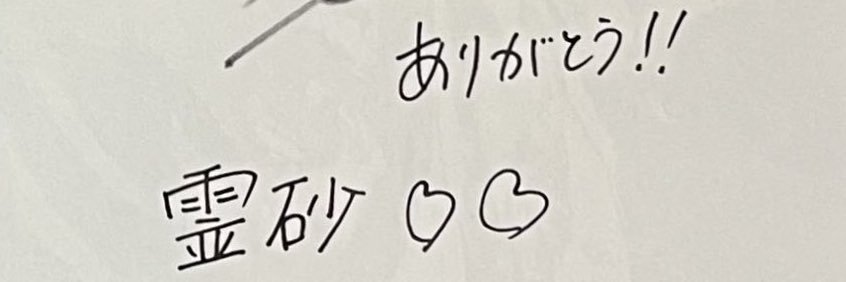 ありがとう!!
霊砂♡♡